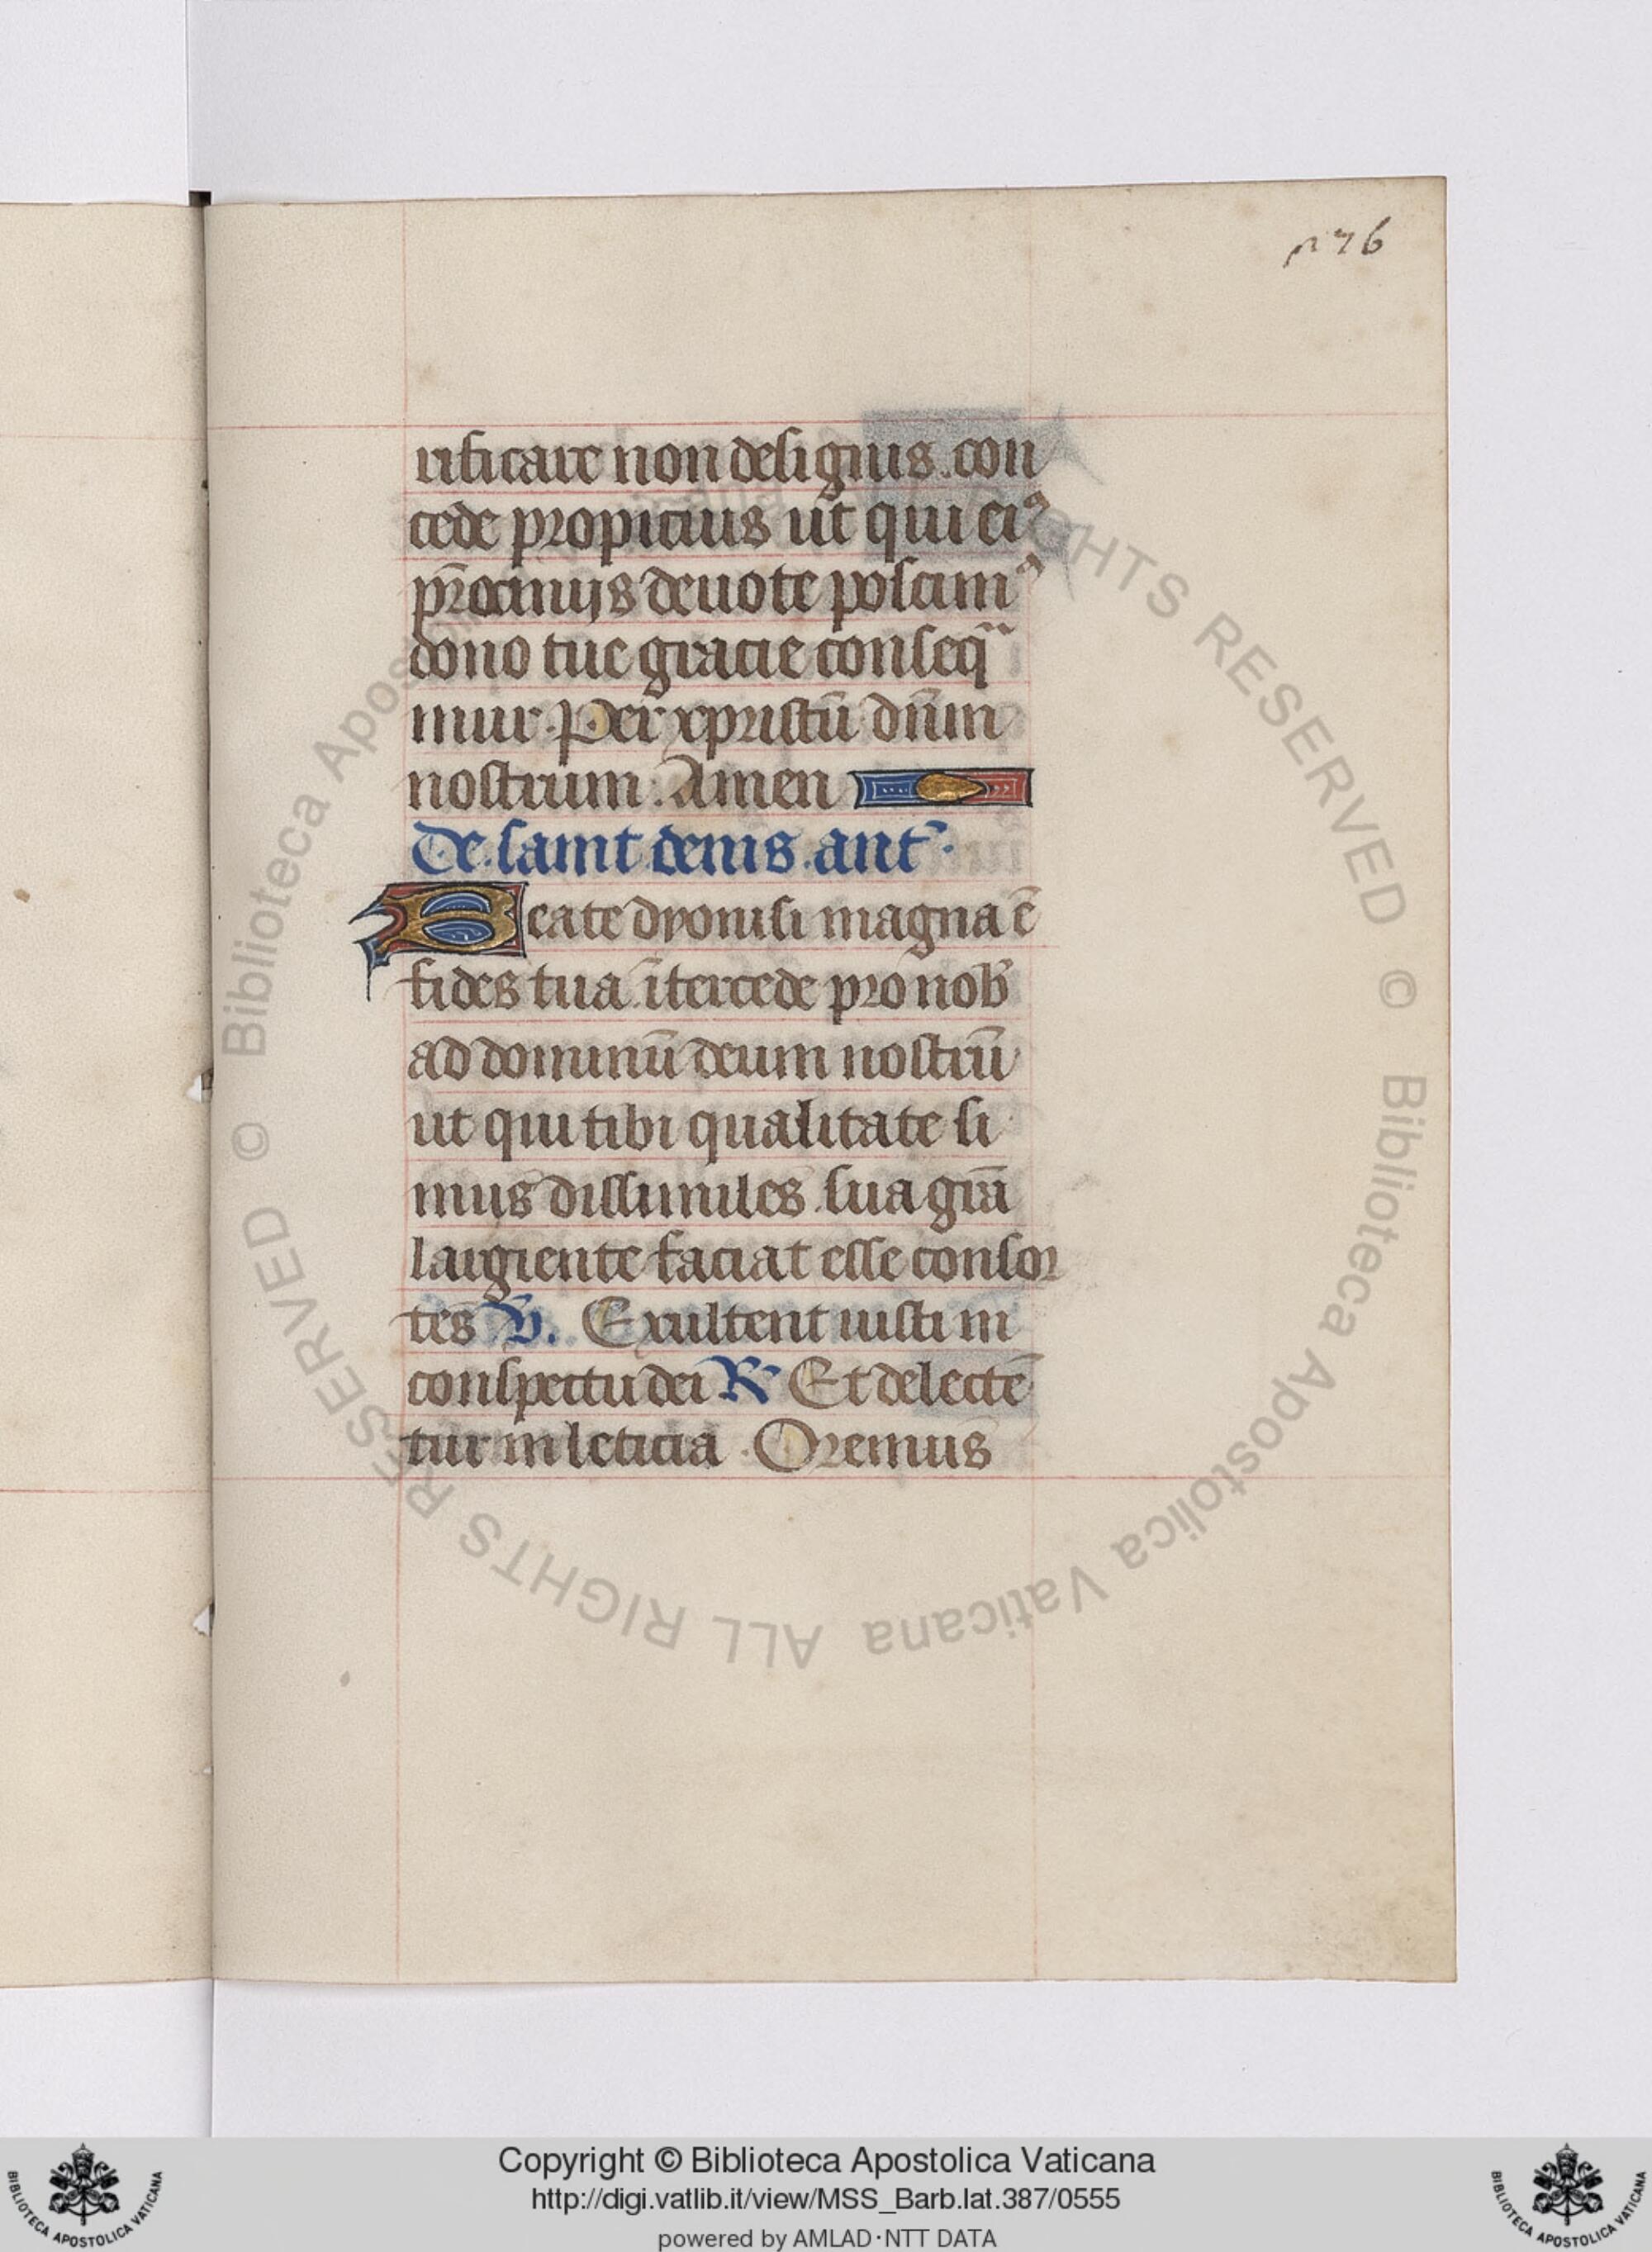 276
rificare non designis. con
cede propicius ut qui ei⁹
p̄coniis deuote poscim⁹
dono tue gracie conseq̄
mur. Per xpristū dn̄m
nostrum. Amen
De saint denis. ant̄.
Beate dyonisi magna ē
fides tua ītercede pro nob̄
ad dominū deum nostrū
ut qui tibi qualitate si
mus dissimiles. sua grā
largiente faciat esse consor
tes ℣. Exultent iusti in
conspectu dei ℟ Et delectē
tur in leticia. Oremus
© Biblioteca Apostolica Vaticana ALL RIGHTS RESERVED © Biblioteca Apostolica Vaticana ALL RIGHTS RESERVED
Copyright © Biblioteca Apostolica Vaticana
http://digi.vatlib.it/view/MSS_Barb.lat.387/0555
powered by AMLAD·NTT DATA
BIBLIOTECA APOSTOLICA VATICANA
BIBLIOTECA APOSTOLICA VATICANA